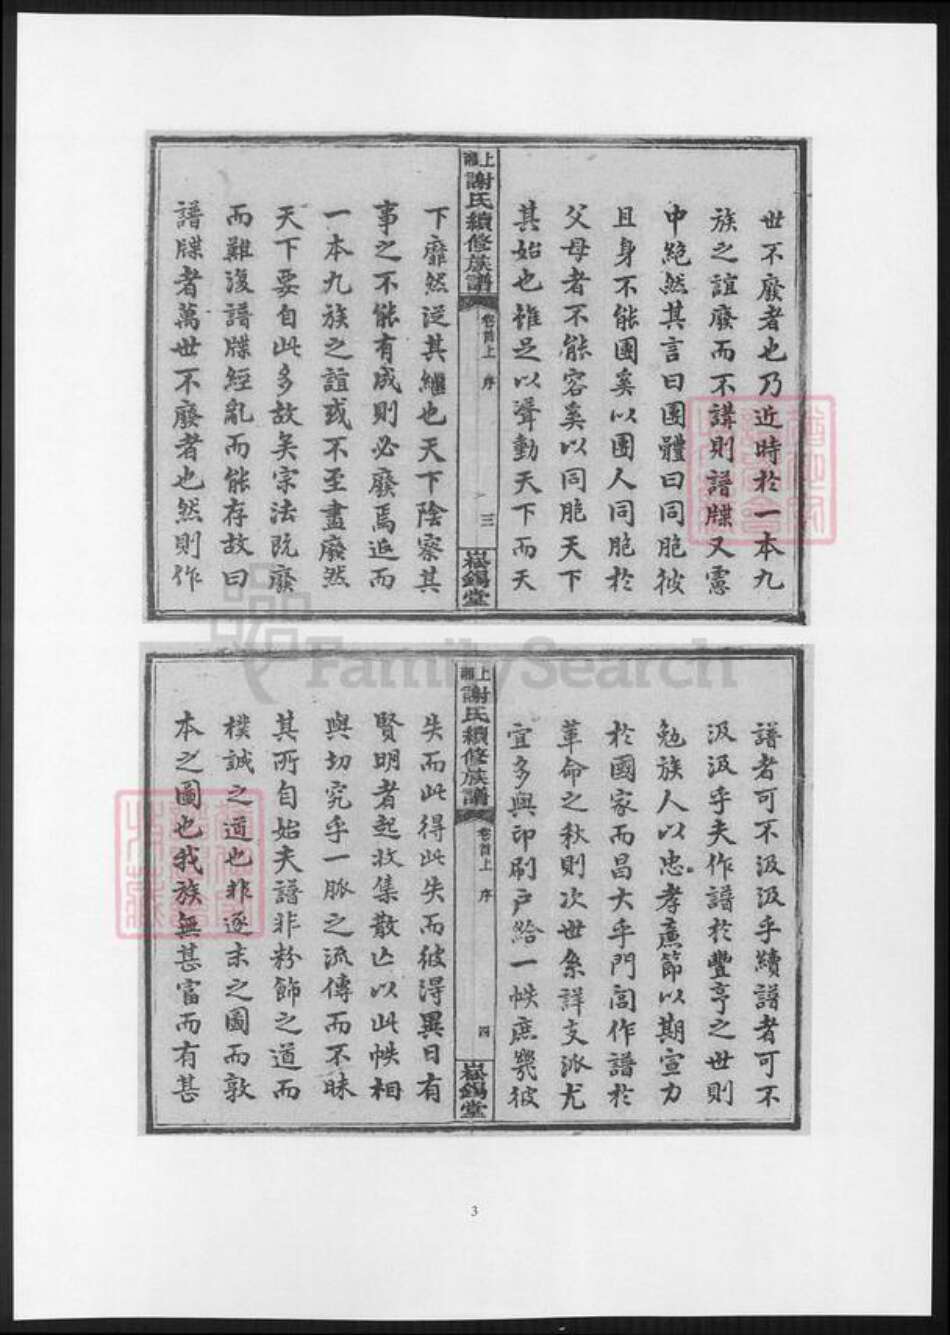 世不廢者也乃近時於一本九
族之誼廢而不講則譜牒又憲
中絶然其言曰團體曰同胞彼
且身不能團奚以團人同胞於
父母者不能容奚以同胞天下
其始也雖足以聳動天下而天
上湘謝氏續修族譜
卷首上 序
三
崧錫堂
下靡然從其繼也天下陰察其
事之不能有成則必廢焉返而
一本九族之誼或不至盡廢然
天下要自此多故矣宗法既廢
而難復譜牒經亂而能存故曰
譜牒者萬世不廢者也然則作
譜者可不汲汲乎續譜者可不
汲汲乎夫作譜於豐亨之世則
勉族人以忠孝廉節以期宣力
於國家而昌大乎門閭作譜於
革命之秋則次世系詳支派尤
宜多與印刷戶給一帙庶幾彼
上湘謝氏續修族譜
卷首上 序
四
崧錫堂
失而此得此失而彼得異日有
賢明者起收集散亡以此帙相
與切究乎一脈之流傳而不昧
其所自始夫譜非粉飾之道而
樸誠之道也非逐末之圖而敦
本之圖也我族無甚富而有甚
FamilySearch
3